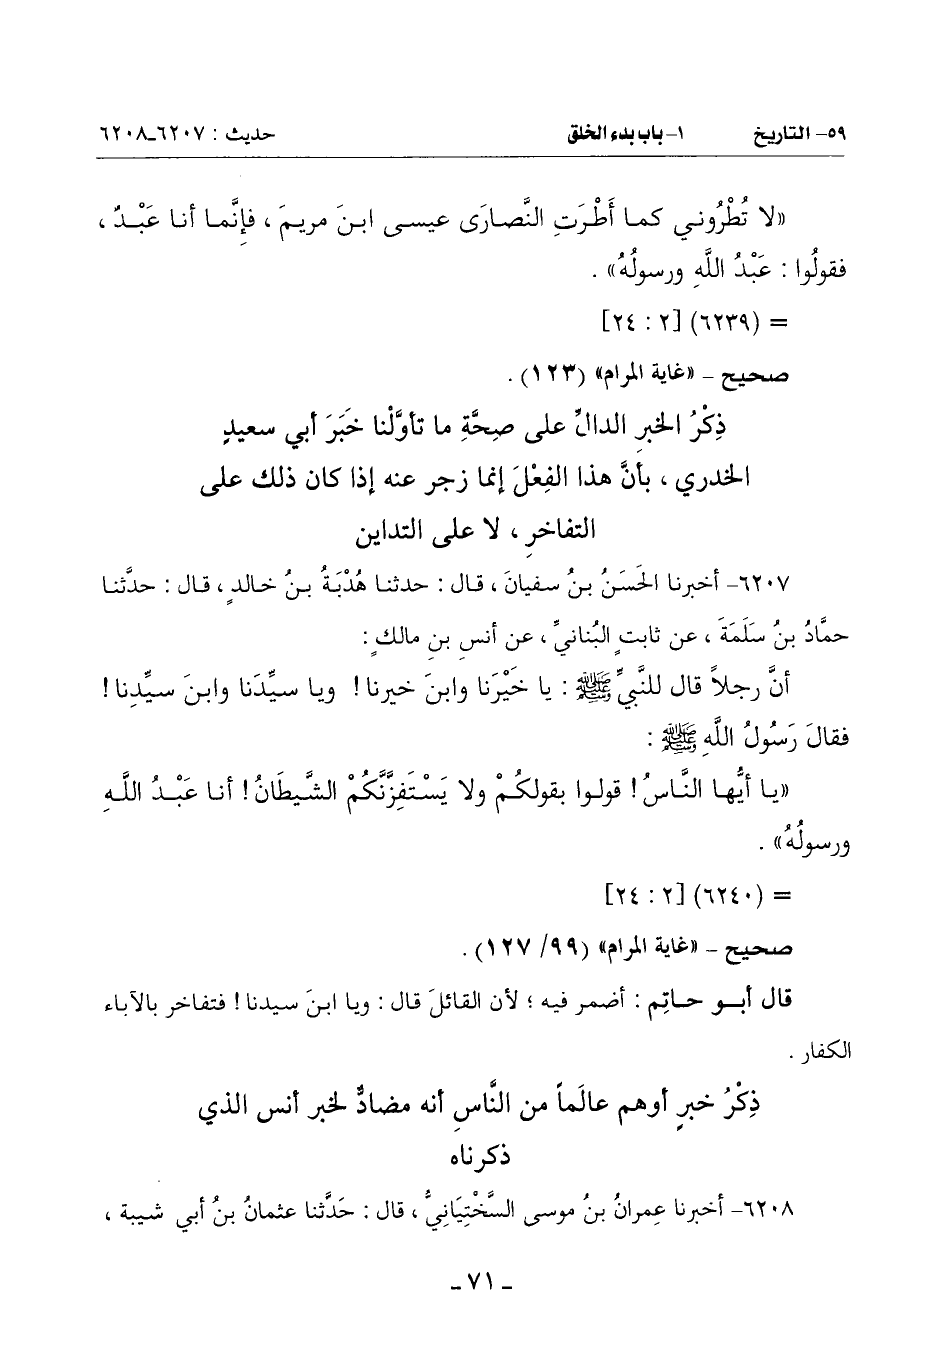 ٥٩- التاريخ ١- باب بدء الخلق حديث : ٦٢٠٧-٦٢٠٨
«لا تُطْرُوني كما أَطْرَتِ النَّصارَى عيسى ابنَ مريمَ ، فإِنَّما أنا عَبْدٌ ،
فقولُوا : عَبْدُ اللَّهِ ورسولُهُ» .
= (٦٢٣٩) [٢ : ٢٤]
صحيح - «غاية المرام» (١٢٣) .
ذِكْرُ الخبرِ الدالِّ على صِحَّةِ ما تأوَّلْنا خَبَرَ أبي سعيدٍ
الخدري ، بأنَّ هذا الفِعْلَ إنما زجر عنه إذا كان ذلك على
التفاخرِ ، لا على التداين
٦٢٠٧- أخبرنا الحَسَنُ بنُ سفيانَ ، قال : حدثنا هُدْبَةُ بنُ خالدٍ ، قال : حدَّثنا
حمَّادُ بنُ سَلَمَةَ ، عن ثابتٍ البُنانيِّ ، عن أنسِ بنِ مالكٍ :
أنَّ رجلاً قال للنَّبيِّ ﷺ : يا خَيْرَنا وابنَ خيرنا ! ويا سيِّدَنا وابنَ سيِّدِنا !
فقالَ رَسُولُ اللَّهِ ﷺ :
«يا أيُّها النَّاسُ ! قولوا بقولكُمْ ولا يَسْتَفِزَّنَّكُمْ الشَّيطَانُ ! أنا عَبْدُ اللَّهِ
ورسولُهُ» .
= (٦٢٤٠) [٢ : ٢٤]
صحيح - «غاية المرام» (٩٩/ ١٢٧) .
قال أبو حاتِم : أضمر فيه ؛ لأن القائلَ قال : ويا ابنَ سيدنا ! فتفاخر بالآباء
الكفار .
ذِكْرُ خبرٍ أوهم عالَماً من النَّاسِ أنه مضادٌّ لخبر أنس الذي
ذكرناه
٦٢٠٨- أخبرنا عِمرانُ بنُ موسى السَّخْتِيَانِيُّ ، قال : حَدَّثنا عثمانُ بنُ أبي شيبة ،
- ٧١ -